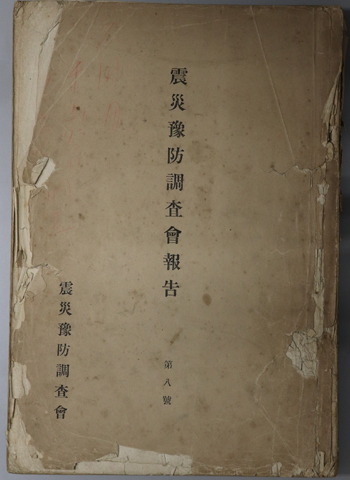 震災豫防調査會報告
第八號
震災豫防調査會